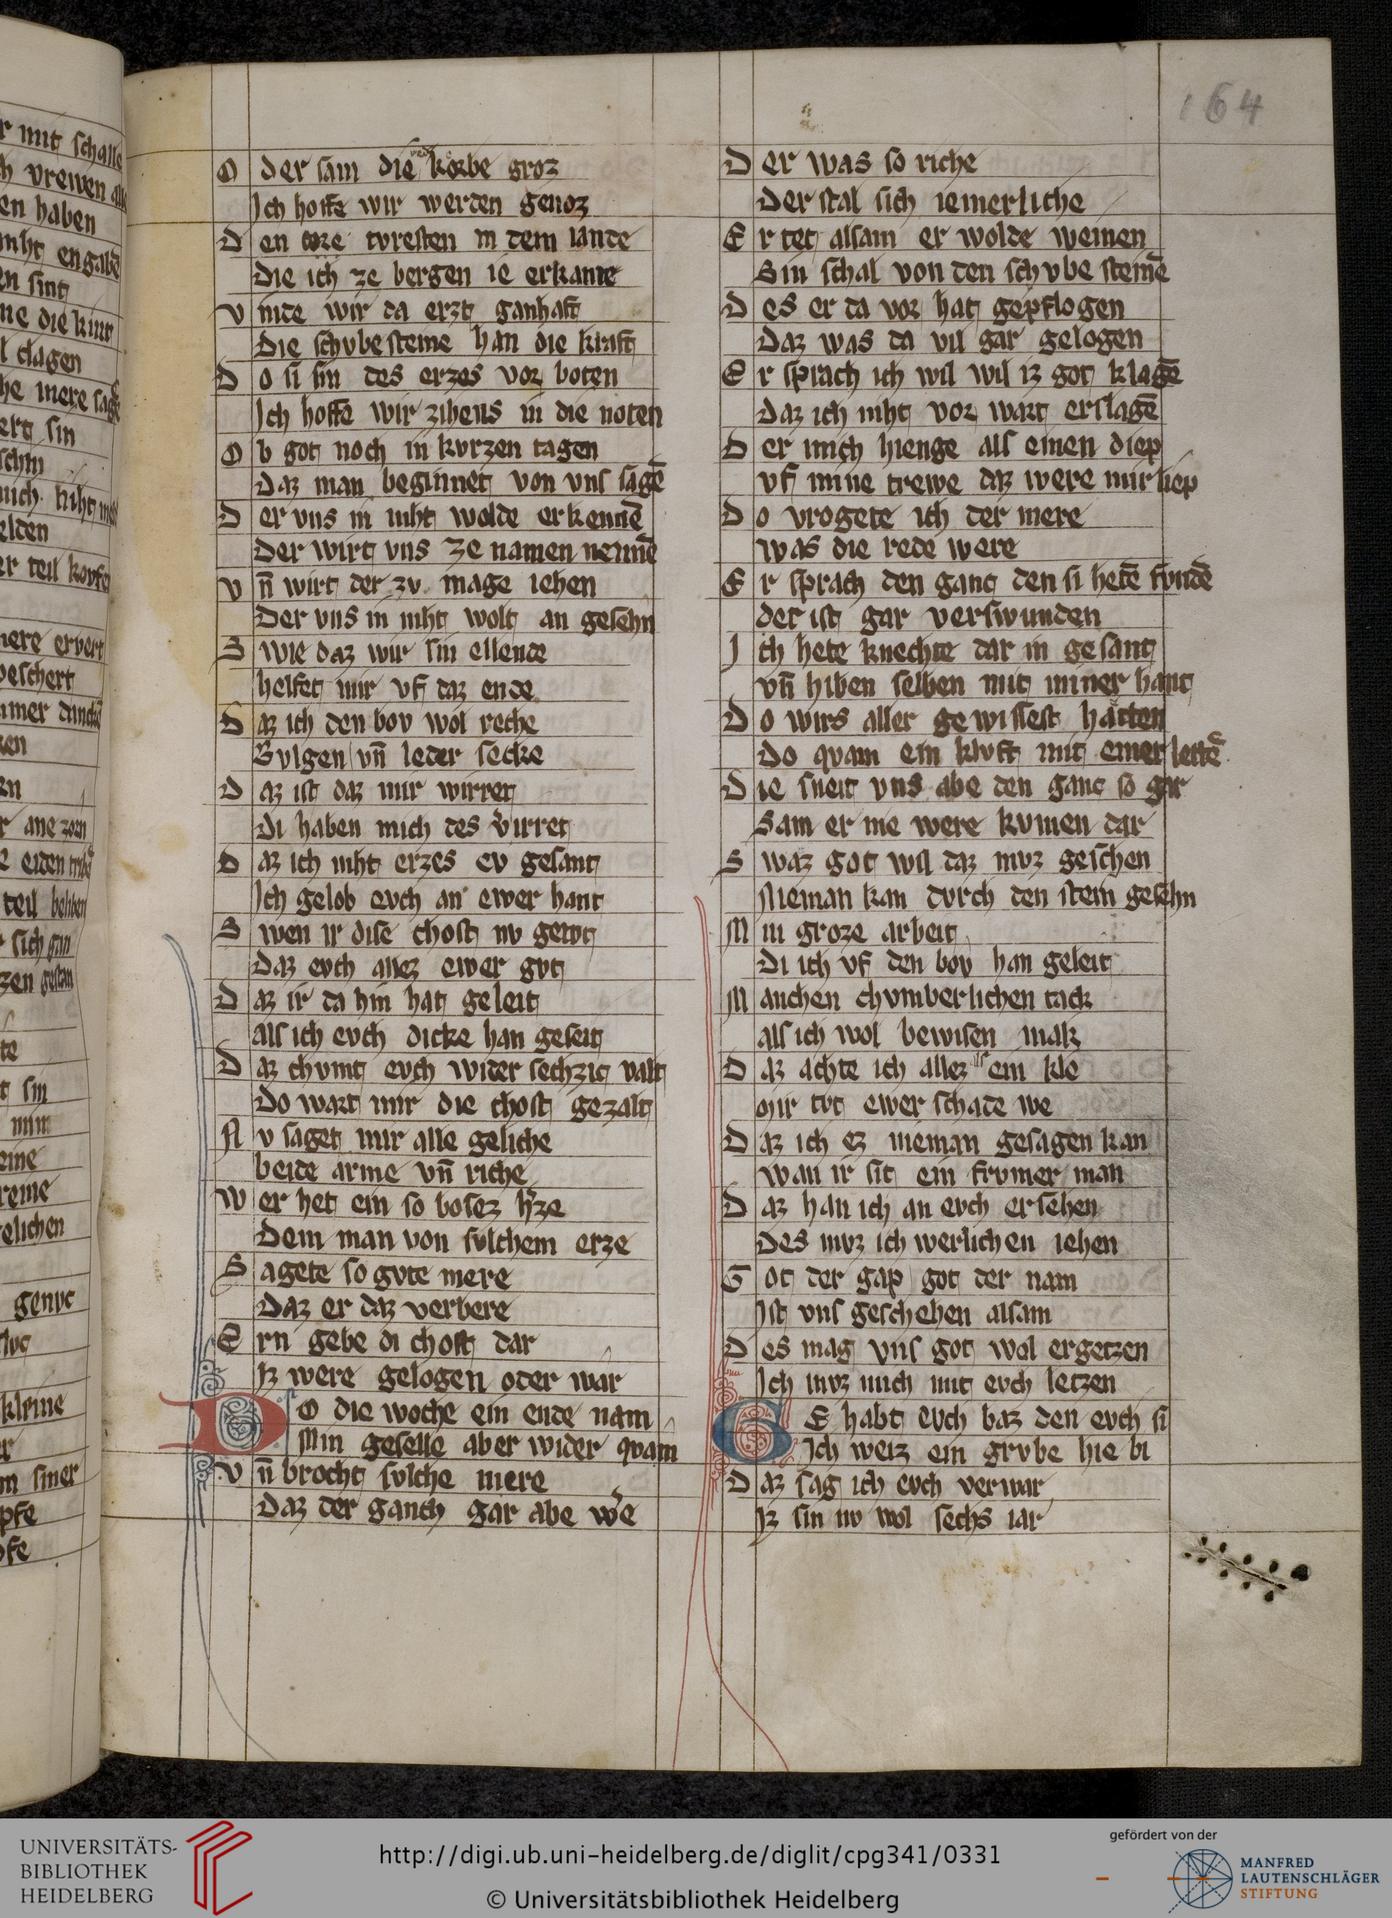 164
O der sam die korbe groz
Ich hoffe wir werden genoz
D en tvresten in dem lande
Die ich ze bergen ie erkante
V nde wir da erzt ganhaft
Die schvbesteine han die kraft
D o si sin des erzes vor boten
Ich hoffe wir zihens in die noten
O b got noch in kvrzen tagen
Daz man beginnet von vns sagē
D er vns in niht wolde erkennē
Der wirt vns ze namen nennē
V n̄ wirt der zv mage iehen
Der vns in niht wolt an gesehn
S wie daz wir sin ellende
helfet mir vf daz ende
D az ich den bov wol reche
Bvlgen vn̄ leder secke
D az ist daz mir wirret
di haben mich des virret
D az ich niht erzes ev gesant
Ich gelob evch an ewer hant
S wen ir dise chost nv gewt
Daz evch allez ewer gvt
D az ir da hin hat geleit
als ich evch dicke han geseit
D az chvmt evch wider sechzic valt
Do wart mir die chost gezalt
N v saget mir alle geliche
beide arme vn̄ riche
W er het ein so bosez h̄ze
Dem man von svlchem erze
S agete so gvte mere
Daz er daz verbere
E rn gebe di chost dar
Iz were gelogen oder war
DO die woche ein ende nam
Min geselle aber wider qvam
V n̄ brocht svlche mere
Daz der ganch gar abe we
D er was so riche
Der stal sich iemerliche
E r tet alsam er wolde weinen
Sin schal von den schvbe steinē
D es er da vor hat gepflogen
Daz was da vil gar gelogen
E r sprach ich wil wil iz got klagē
Daz ich niht vor wart erslagē
D er mich hienge als einen diep
vf mine trewe daz were mir liep
D o vrogete ich der mere
was die rede were
E r sprach den ganc den si hetē fvndē
der ist gar verswunden
I ch hete knechte dar in gesant
vn̄ hiben selben mit miner hant
D o wirs aller gewissest hatten
Do qvam ein klvft mit einer lettē
D ie sneit vns abe den ganc so gar
Sam er nie were kvmen dar
S waz got wil daz mvz geschen
Nieman kan dvrch den stein gesehn
M in groze arbeit
Di ich vf den bov han geleit
M anchen chvmberlichen tack
als ich wol bewisen mak
D az achte ich allez als ein kle
Mir tvt ewer schade we
D az ich ez nieman gesagen kan
wan ir sit ein frvmer man
D az han ich an evch ersehen
Des mvz ich werlichen iehen
G ot der gap got der nam
Ist vns geschehen alsam
D es mag vns got wol ergetzen
Ich mvz mich mit evch letzen
GE habt evch baz den evch si
Ich weiz ein grvbe hie bi
D az sag ich evch verwar
Iz sin nv wol sechs iar
UNIVERSITÄTS-
BIBLIOTHEK
HEIDELBERG
http://digi.ub.uni-heidelberg.de/diglit/cpg341/0331
© Universitätsbibliothek Heidelberg
gefördert von der
MANFRED
LAUTENSCHLÄGER
STIFTUNG